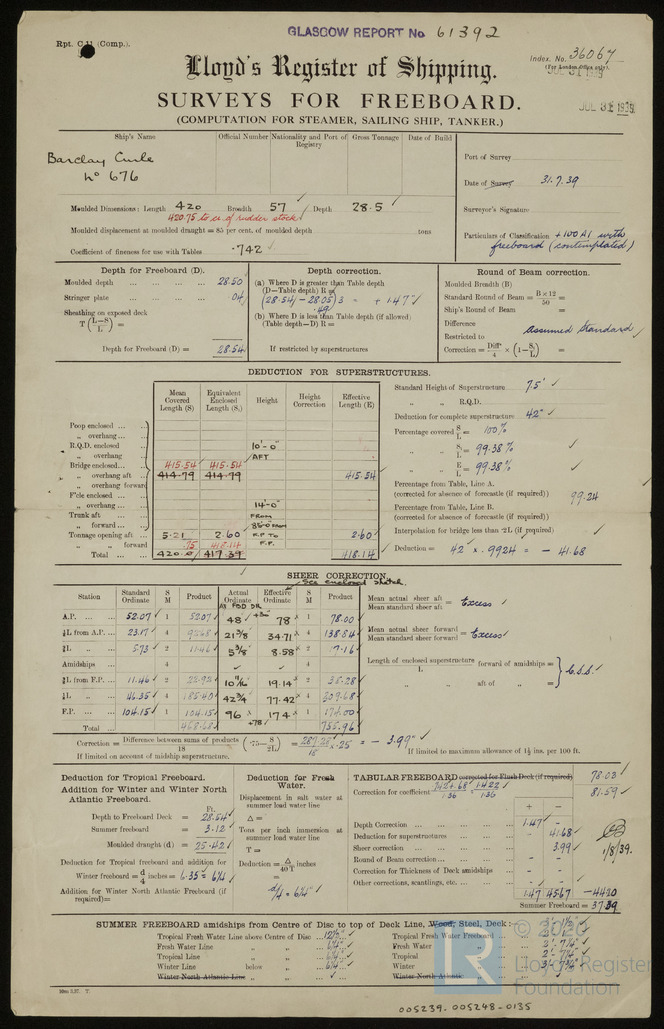 GLASGOW REPORT No 61392
Rpt. C.11 (Comp.).
Index. No. 36067
(For London Office only).
JUL 31 1939
Lloyd's Register of Shipping.
SURVEYS FOR FREEBOARD.
JUL 31 1939
(COMPUTATION FOR STEAMER, SAILING SHIP, TANKER.)
Ship's Name Official Number Nationality and Port of Registry Gross Tonnage Date of Build
Barclay Curle
No 676
Port of Survey
Date of Survey 31.7.39
Surveyor's Signature
Particulars of Classification +100A1 with
freeboard (contemplated)
Moulded Dimensions: Length 420 Breadth 57 Depth 28.5
420.75 to c. of rudder stock
Moulded displacement at moulded draught = 85 per cent. of moulded depth tons
Coefficient of fineness for use with Tables .742
Depth for Freeboard (D).
Moulded depth 28.50
Stringer plate .04
Sheathing on exposed deck
T (L-S/L) =
Depth for Freeboard (D) = 28.54
Depth correction.
(a) Where D is greater than Table depth
(D—Table depth) R =
(28.54 - 28.05) 3 = + 1.47
.49
(b) Where D is less than Table depth (if allowed)
(Table depth—D) R =
If restricted by superstructures
Round of Beam correction.
Moulded Breadth (B)
Standard Round of Beam = B×12/50 =
Ship's Round of Beam =
Difference
Assumed Standard
Restricted to
Correction = Diff/4 × (1-S/L) =
DEDUCTION FOR SUPERSTRUCTURES.
Mean Covered Length (S) Equivalent Enclosed Length (S₁) Height Height Correction Effective Length (E)
Poop enclosed
„ overhang
R.Q.D. enclosed 10'-0"
„ overhang AFT
Bridge enclosed 415.54 415.54 415.54
„ overhang aft 414.79 414.79
„ overhang forward
F'cle enclosed
„ overhang 14-0"
Trunk aft FROM
„ forward
Tonnage opening aft 5.21 2.60 2.60
„ „ forward .75
Total 420.0 417.39 418.14
Standard Height of Superstructure 7.5'
„ „ R.Q.D.
Deduction for complete superstructure 42"
Percentage covered S/L = 100%
„ S₁/L = 99.38%
„ E/L = 99.38%
Percentage from Table, Line A.
(corrected for absence of forecastle (if required)) 99.24
Percentage from Table, Line B.
(corrected for absence of forecastle (if required))
Interpolation for bridge less than ·2L (if required)
Deduction = 42 × .9924 = - 41.68
SHEER CORRECTION.
See enclosed sketch.
Station Standard Ordinate S M Product Actual Ordinate Effective Ordinate S M Product
A.P. 52.07 1 52.07 48 78 1 78.00
⅙L from A.P. 23.17 4 92.68 21⅜ 34.71 4 138.84
⅓L „ 5.73 2 11.46 5⅜ 8.58 2 17.16
Amidships 4 4
⅓L from F.P. 11.46 2 22.92 19.14 2
⅙L „ 46.35 4 185.40 42¾ 77.42 4 309.68
F.P. 104.15 1 104.15 96 174 1 174.00
Total 468.68 +78 755.96
Mean actual sheer aft / Mean standard sheer aft = Excess
Mean actual sheer forward / Mean standard sheer forward = Excess
Length of enclosed superstructure / L forward of amidships =
„ „ aft of „ =
Correction = Difference between sums of products / 18 (·75 - S/2L) = 287.28/18 × .25 = - 3.99"
If limited on account of midship superstructure.
If limited to maximum allowance of 1½ ins. per 100 ft.
Deduction for Tropical Freeboard.
Addition for Winter and Winter North Atlantic Freeboard.
Ft.
Depth to Freeboard Deck = 28.54
Summer freeboard = 3.12
Moulded draught (d) = 25.42
Deduction for Tropical freeboard and addition for
Winter freeboard = d/4 inches = 6.35 = 6¼
Addition for Winter North Atlantic Freeboard (if required) =
Deduction for Fresh Water.
Displacement in salt water at summer load water line
Δ =
Tons per inch immersion at summer load water line
T =
Deduction = Δ/40T inches =
d/4 = 6¼"
TABULAR FREEBOARD corrected for Flush Deck (if required) 78.03
Correction for coefficient .742+.68/1.36 1.422/1.36 81.59
+ -
Depth Correction 1.47 -
Deduction for superstructures - 41.68
Sheer correction - 3.99
Round of Beam correction - -
Correction for Thickness of Deck amidships - -
Other corrections, scantlings, etc. - -
1.47 45.67 -44.20
Summer Freeboard = 37.39
1/8/39.
SUMMER FREEBOARD amidships from Centre of Disc to top of Deck Line, Wood, Steel, Deck: 3'-1½"
Tropical Fresh Water Line above Centre of Disc 12½" Tropical Fresh Water Freeboard
Fresh Water Line „ „ 6¼" Fresh Water „ 2'-7¼"
Tropical Line „ „ 6¼" Tropical „ 2'-7¼"
Winter Line below „ 6¼" Winter „ 3'-7¾"
Winter North Atlantic Line „ „ Winter North Atlantic „
© 2020
LR
Lloyd's Register
Foundation
005239-005248-0135